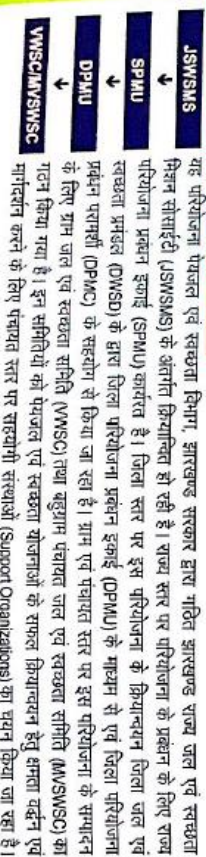 JSWSMS
↓
SPMU
↓
DPMU
↓
VWSC/MVSWSC
यह परियोजना पेयजल एवं स्वच्छता विभाग, झारखण्ड सरकार द्वारा गठित झारखण्ड राज्य जल एवं स्वच्छता
मिशन सोसाईटी (JSWSMS) के अंतर्गत क्रियान्वित हो रही है। राज्य स्तर पर परियोजना के प्रबंधन के लिए राज्य
परियोजना प्रबंधन इकाई (SPMU) कार्यरत है। जिला स्तर पर इस परियोजना के क्रियान्वयन जिला जल एवं
स्वच्छता प्रमंडल (DWSD) के द्वारा जिला परियोजना प्रबंधन इकाई (DPMU) के माध्यम से एवं जिला परियोजना
प्रबंधन परामर्शी (DPMC) के सहयोग से किया जा रहा है। ग्राम एवं पंचायत स्तर पर इस परियोजना के सम्पादन
के लिए ग्राम जल एवं स्वच्छता समिति (VWSC) तथा बहुग्राम पंचायत जल एवं स्वच्छता समिति (MVSWSC) का
गठन किया गया है। इन समितियों को पेयजल एवं स्वच्छता योजनाओं के सफल क्रियान्वयन हेतु क्षमता वर्द्धन एवं
मार्गदर्शन करने के लिए पंचायत स्तर पर सहयोगी संस्थाओं (Support Organizations) का चयन किया जा रहा है।